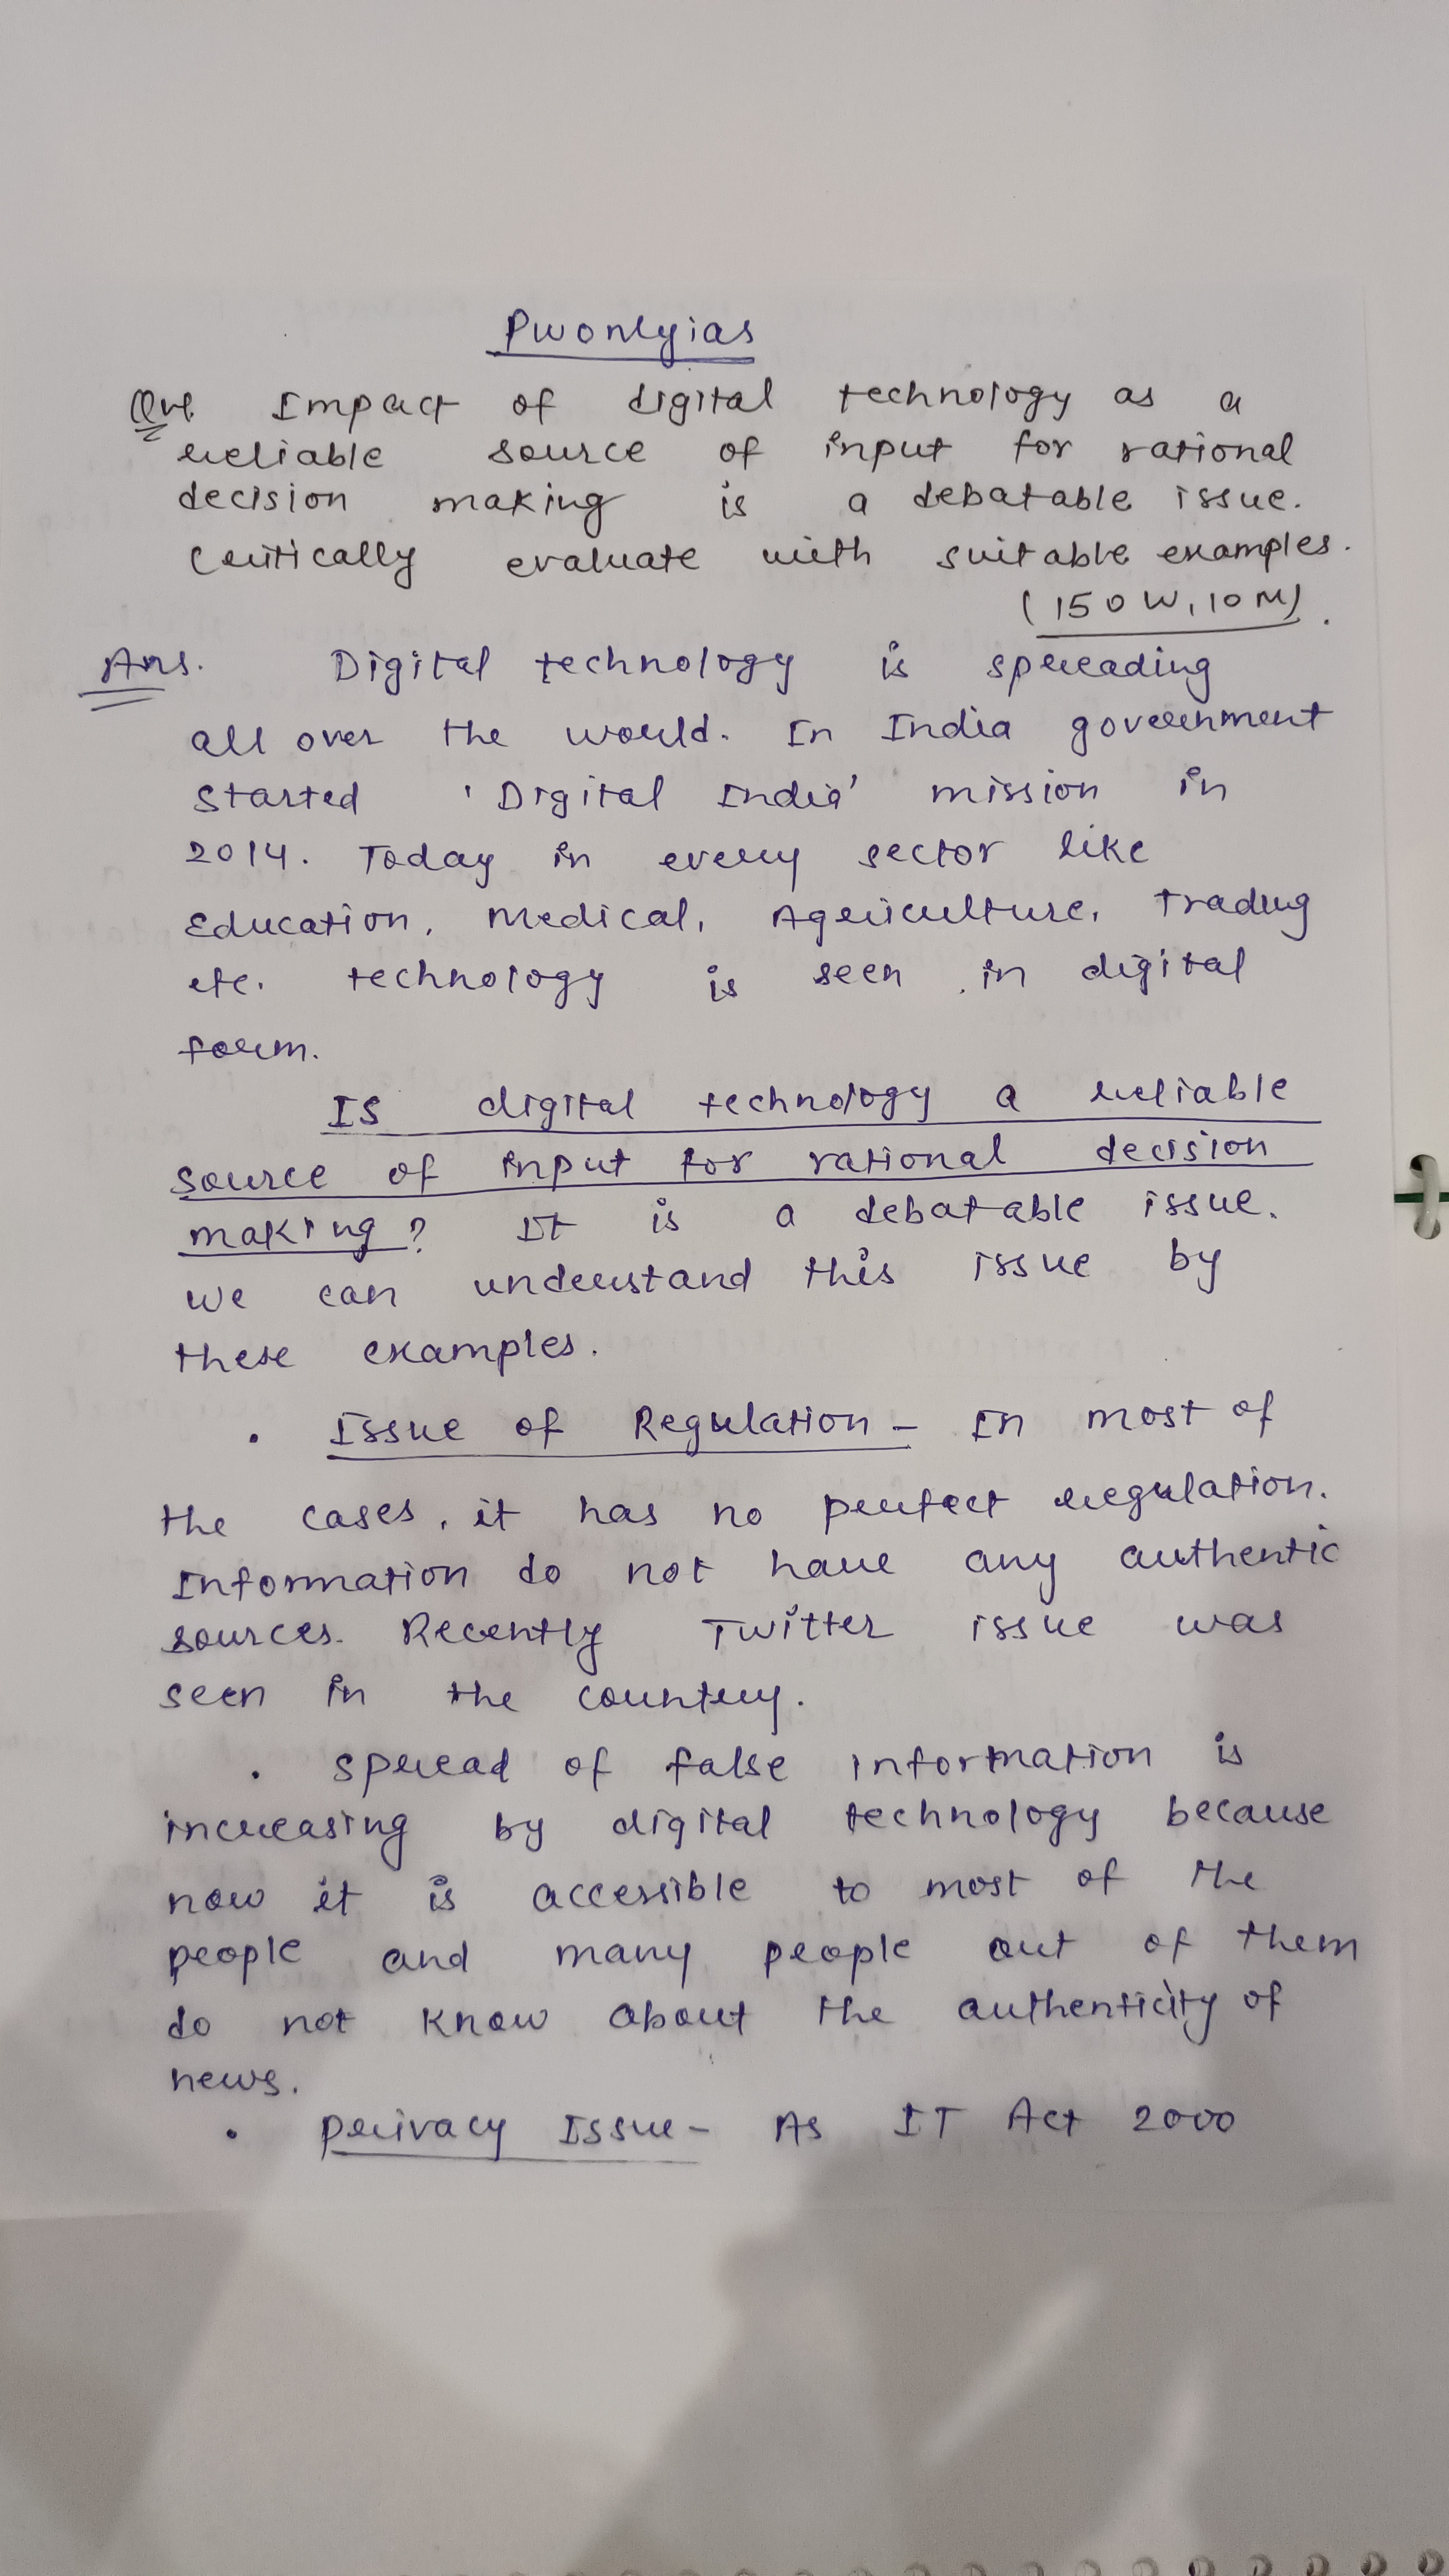 Pwonlyias
Que Impact of digital technology as a
reliable source of input for rational
decision making is a debatable issue.
Critically evaluate with suitable examples.
(150 W, 10 M).
Ans. Digital technology is spreading
all over the world. In India government
started 'Digital India' mission in
2014. Today in every sector like
Education, Medical, Agriculture, Trading
etc. technology is seen in digital
form.
Is digital technology a reliable
source of input for rational decision
making? It is a debatable issue.
we can understand this issue by
these examples.
• Issue of Regulation - In most of
the cases, it has no perfect regulation.
Information do not have any authentic
sources. Recently Twitter issue was
seen in the country.
• Spread of false information is
increasing by digital technology because
now it is accessible to most of the
people and many people out of them
do not know about the authenticity of
news.
• Privacy Issue - As IT Act 2000